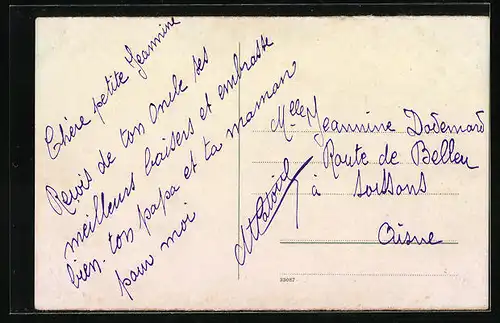 Chère petite Jeannine
Reçois de ton Oncle ses
meilleurs baisers et embrasse
bien ton papa et ta maman
pour moi
Melle Jeannine Dodemard
Route de Belleu
à Soissons
Aisne
33087